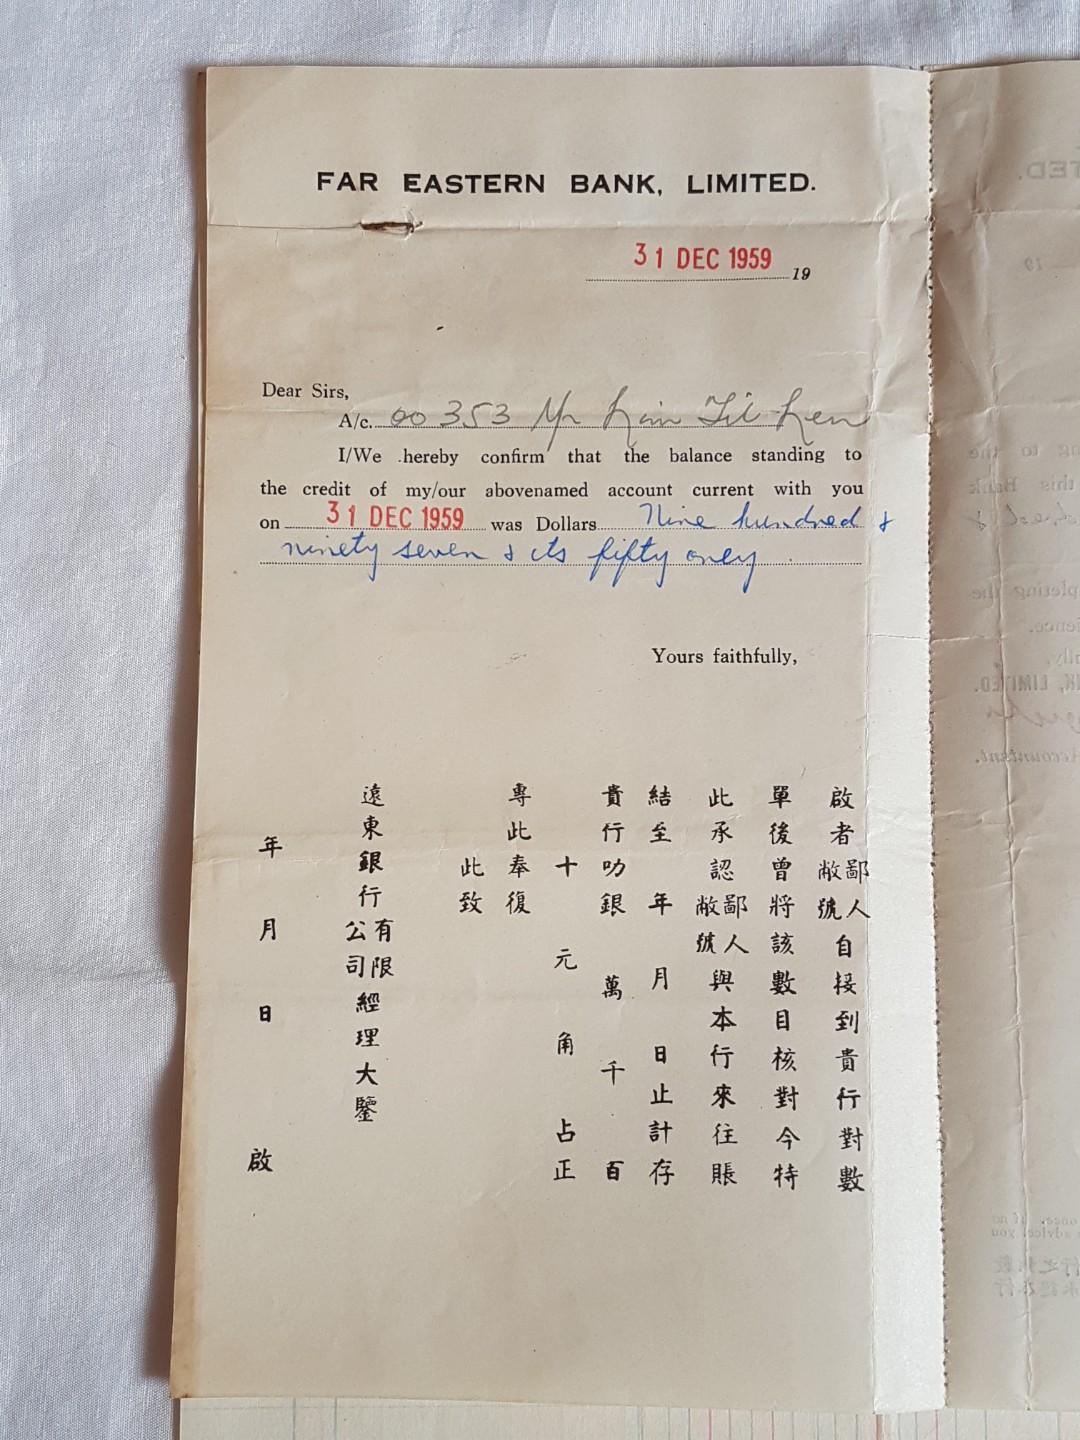 FAR EASTERN BANK, LIMITED.
31 DEC 1959 19
Dear Sirs,
A/c. 00353 Mr Lim
I/We hereby confirm that the balance standing to
the credit of my/our abovenamed account current with you
on 31 DEC 1959 was Dollars Nine hundred &
ninety seven & cts fifty only
Yours faithfully,
啟者鄙人敝號自接到貴行對數
單後曾將該數目核對今特
此承認鄙人敝號與本行來往賬
結至 年 月 日止計存
貴行叻銀 萬 千 百
十 元 角 占正
專此奉復
此致
遠東銀行有限公司經理大鑒
年 月 日 啟